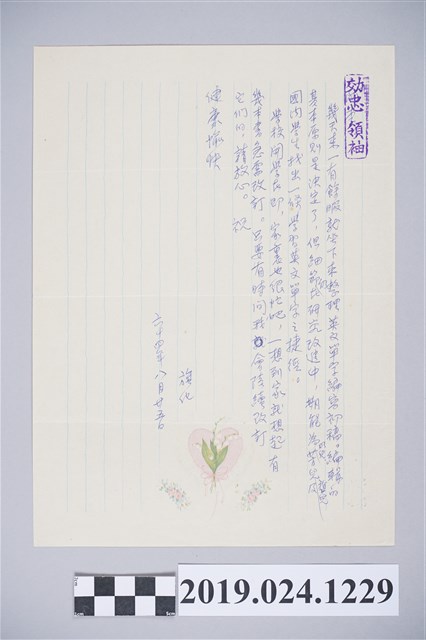 効忠領袖
幾天來一有餘暇就坐下來整理英文單字編寫初稿。編輯的
基本原則是決定了,但細節仍研究改進中,期能為芳兒及
國內學生找出一條學習英文單字之捷徑。
學校開學在即,家裏也很忙吧,一想到家就想起有
幾本書急需改訂。只要有時間我會陸續改訂
它們的,請放心。祝
健康愉快
旗化
六十四年八月廿五日
2019.024.1229